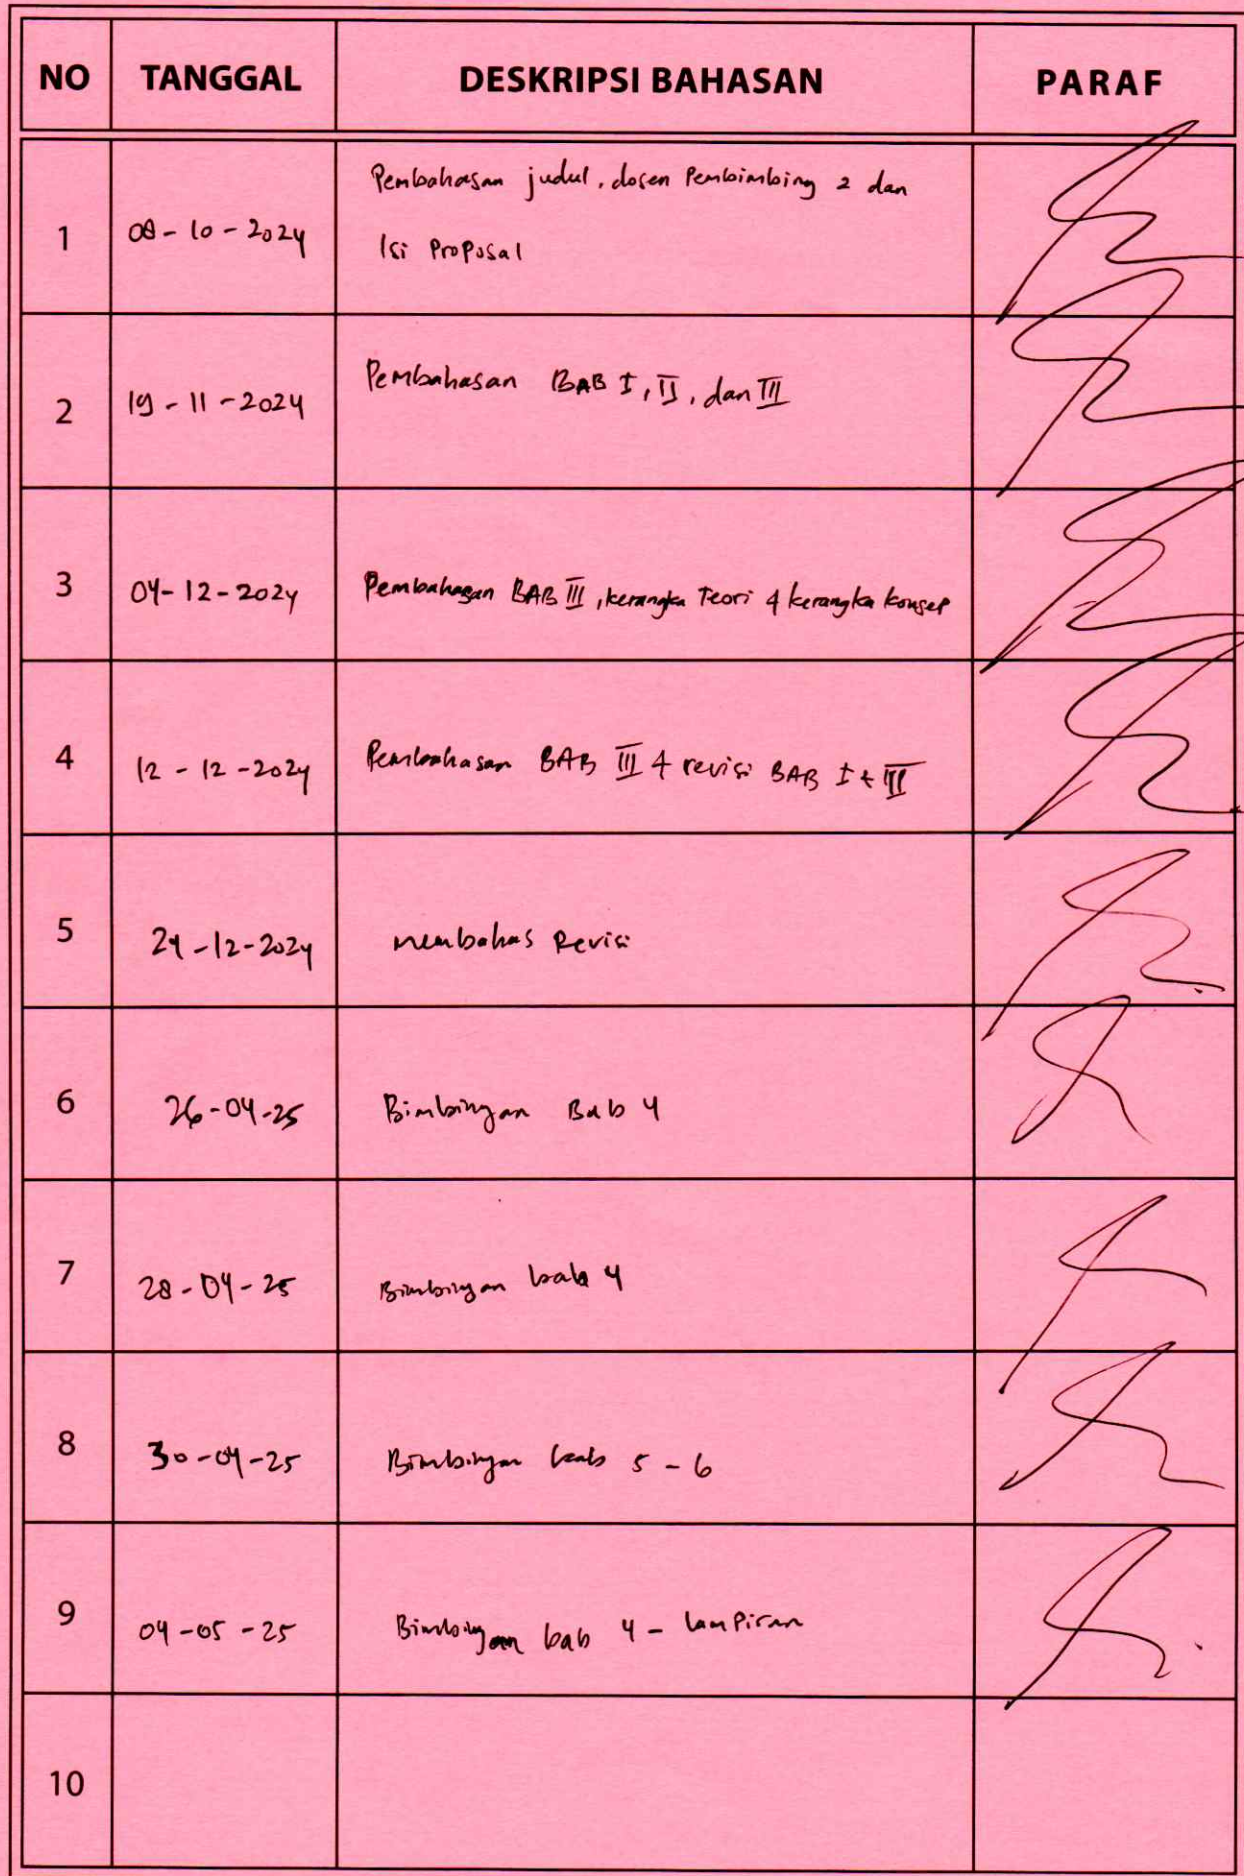 NO TANGGAL DESKRIPSI BAHASAN PARAF
Pembahasan judul, dosen Pembimbing 2 dan
1 08-10-2024
Isi Proposal
2 19-11-2024 Pembahasan BAB I, II, dan III
3 04-12-2024 Pembahasan BAB III, kerangka Teori & kerangka konsep
4 12-12-2024 Pembahasan BAB III & revisi BAB I & III
5 24-12-2024 membahas Revisi
6 26-04-25 Bimbingan Bab 4
7 28-04-25 Bimbingan bab 4
8 30-04-25 Bimbingan bab 5-6
9 04-05-25 Bimbingan bab 4 - lampiran
10